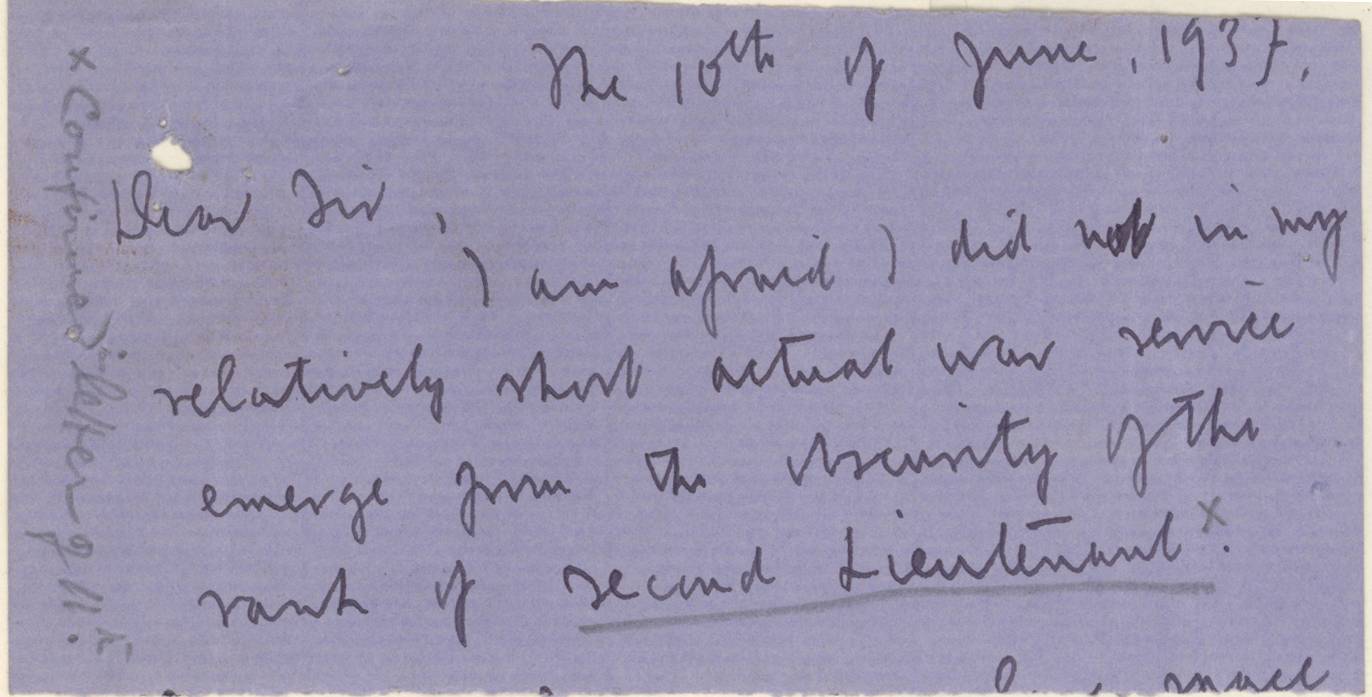 The 10th of June, 1937.
Dear Sir,
I am afraid I did not in my
relatively short actual war service
emerge from the obscurity of the
rank of second Lieutenant x.
x Confirmed in letter of 11.